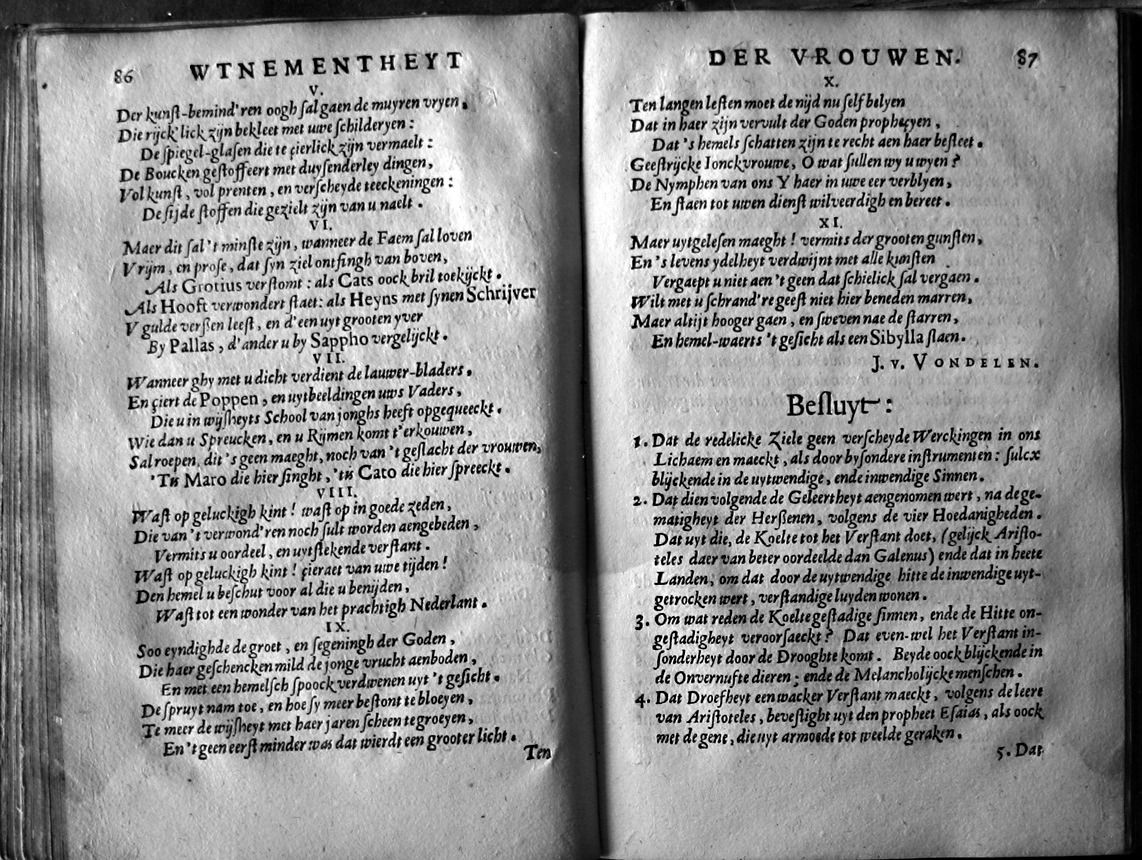 86 WTNEMENTHEYT
V.
Der kunst-bemind'ren oogh sal gaen de muyren vryen,
Die rijck'lick zijn bekleet met uwe schilderyen:
De spiegel-glasen die te çierlick zijn vermaelt:
De Boucken gestoffeert met duysenderley dingen,
Vol kunst, vol prenten, en verscheyde teeckeningen:
De sijde stoffen die geziele zijn van u naelt.
VI.
Maer dit sal 't minste zijn, wanneer de Faem sal loven
Vrijm, en prose, dat syn ziel ontfingh van boven,
Als Grotius verstomt: als Cats oock bril toekijckt.
Als Hooft verwondert staet: als Heyns met synen Schrijver
V gulde verßen leest, en d'een uyt grooten yver
By Pallas, d'ander u by Sappho vergelijckt.
VII.
Wanneer ghy met u dicht verdient de lauwer-bladers.
En çiert de Poppen, en uytbeeldingen uws Vaders,
Die u in wijsheyts School van jonghs heeft opgequeeckt.
Wie dan u Spreucken, en u Rijmen komt t'erkouwen,
Sal roepen, dit 's geen maeght, noch van 't geslacht der vrouwen,
'Tis Maro die hier singht, 'tis Cato die hier spreeckt.
VIII.
Wast op geluckigh kint! wast op in goede zeden,
Die van 't verwond'ren noch sult worden aengebeden,
Vermits u oordeel, en uytstekende verstant.
Wast op geluckigh kint! çieraet van uwe tijden!
Den hemel u beschut voor al die u benijden,
Wast tot een wonder van het prachtigh Nederlant.
IX.
Soo eyndighde de groet, en segeningh der Goden,
Die haer geschencken mild de jonge vrucht aenboden,
En met een hemelsch spoock verdwenen uyt 't gesicht.
De spruyt nam toe, en hoe sy meer bestont te bloeyen,
Te meer de wijsheyt met haer jaren scheen te groeyen,
En 't geen eerst minder was dat wierdt een grooter licht.
Ten
DER VROUWEN. 87
X.
Ten langen lesten moet de nijd nu self belyen
Dat in haer zijn vervult der Goden prophecyen,
Dat 's hemels schatten zijn te recht aen haer besteet.
Geestrijcke Ionckvrouwe, O wat sullen wy u wyen?
De Nymphen van ons Y haer in uwe eer verblyen,
En staen tot uwen dienst wilveerdigh en bereet.
XI.
Maer uytgelesen maeght! vermits der grooten gunsten,
En 's levens ydelheyt verdwijnt met alle kunsten
Vergaept u niet aen 't geen dat schielick sal vergaen.
Wilt met u schrand're geest niet hier beneden marren,
Maer altijt hooger gaen, en sweven nae de starren,
En hemel-waerts 't gesicht als een Sibylla slaen.
J. v. VONDELEN.
Besluyt:
1. Dat de redelicke Ziele geen verscheyde Werckingen in ons
Lichaem en maeckt, als door bysondere instrumenten: sulcx
blijckende in de uytwendige, ende inwendige Sinnen.
2. Dat dien volgende de Geleertheyt aengenomen wert, na de ge-
matigheyt der Herßenen, volgens de vier Hoedanigheden.
Dat uyt die, de Koelte tot het Verstant doet, (gelijck Aristo-
teles daer van beter oordeelde dan Galenus) ende dat in heete
Landen, om dat door de uytwendige hitte de inwendige uyt-
getrocken wert, verstandige luyden wonen.
3. Om wat reden de Koelte gestadige sinnen, ende de Hitte on-
gestadigheyt veroorsaeckt? Dat even-wel het Verstant in-
sonderheyt door de Drooghte komt. Beyde oock blijckende in
de Onvernufte dieren; ende de Melancholijcke menschen.
4. Dat Droefheyt een wacker Verstant maeckt, volgens de leere
van Aristoteles, bevestight uyt den propheet Esaias, als oock
met de gene, die uyt armoede tot weelde geraken.
5. Dat